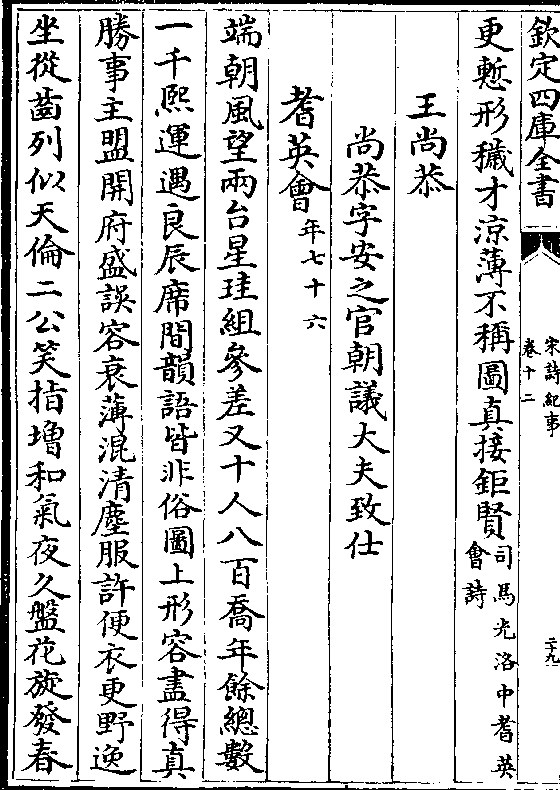 欽定四庫全書
宋詩紀事
卷十二
二十九
更慙形穢才涼薄不稱圖真接鉅賢司馬光洛中耆英
會詩
王尚恭
尚恭字安之官朝議大夫致仕
耆英會年七十六
端朝風望兩台星珪組參差又十人八百喬年餘總數
一千熙運遇良辰席間韻語皆非俗圖上形容盡得真
勝事主盟開府盛誤容衰薄混清塵服許便衣更野逸
坐從齒列似天倫二公笑指增和氣夜久盤花旋發春